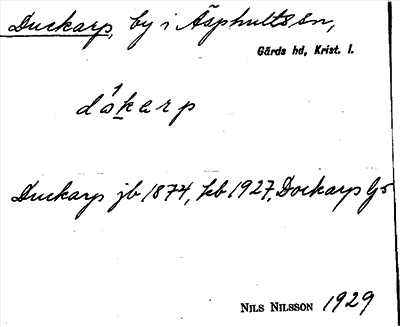 Duckarp, by i Äsphults sn,
Gärds hd, Krist. l.
dåkarp
Duckarp jb 1874, kb 1927, Dockarp
NILS NILSSON 1929